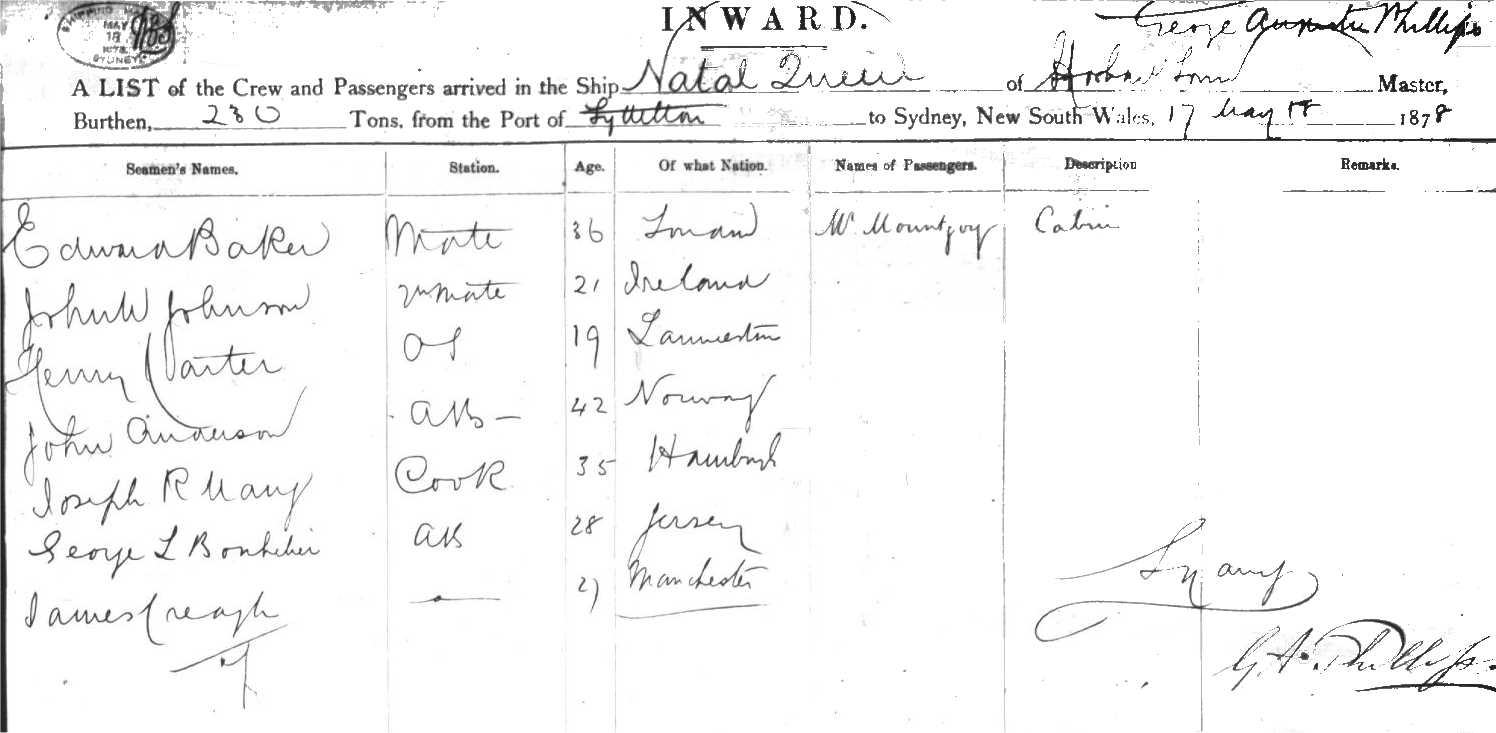 SHIPPING MAY 18 1878 SYDNEY
INWARD.
George Augustus Phillips
A LIST of the Crew and Passengers arrived in the Ship Natal Queen of Hobart Town Master,
Burthen, 230 Tons, from the Port of Lyttelton to Sydney, New South Wales, 17 May 18 1878
Seamen's Names. Station. Age. Of what Nation. Names of Passengers. Description Remarks.
Edward Baker Mate 36 Mr Mountjoy Cabin
John W Johnson 2n Mate 21 Ireland
Henry Carter OS 19 Launceston
John Anderson AB 42 Norway
Joseph R Cook 35 Hamburgh
George L AB 28 Jersey
James Creagh 27 Manchester
G A Phillips